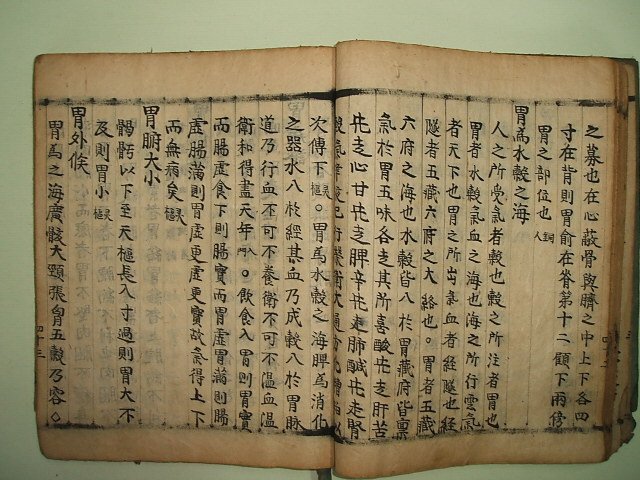 之募也在心蔽骨與臍之中上下各四
寸在背則胃俞在脊第十二顀下兩傍
胃之部位也 銅人
胃為水穀之海
人之所受氣者穀也穀之所注者胃也
胃者水穀氣血之海也海之所行雲氣
者天下也胃之所出氣血者經隧也經
隧者五藏六府之大絡也○胃者五藏
六府之海也水穀皆入於胃藏府皆稟
氣於胃五味各走其所喜酸先走肝苦
先走心甘先走脾辛先走肺醎先走腎
穀氣津液已行榮衛大通乃化糟粕以
次傳下 靈樞○胃為水穀之海脾為消化
之器水入於經其血乃成穀入於胃脉
道乃行血不可不養衛不可不溫血溫
衛和得盡天年 入門○飲食入胃則胃實
而腸虛食下則腸實而胃虛胃滿則腸
虛腸滿則胃虛更虛更實故氣得上下
而無病矣 靈樞
胃腑大小
𩩲骬以下至天樞長八寸過則胃大不
及則胃小 靈樞
胃外候
胃為之海廣骸大頸張胷五穀乃容○
四十三